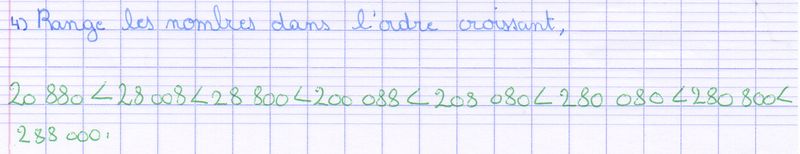 4) Range les nombres dans l'ordre croissant,
20 880 < 28 008 < 28 800 < 200 088 < 208 080 < 280 080 < 280 800 <
288 000.